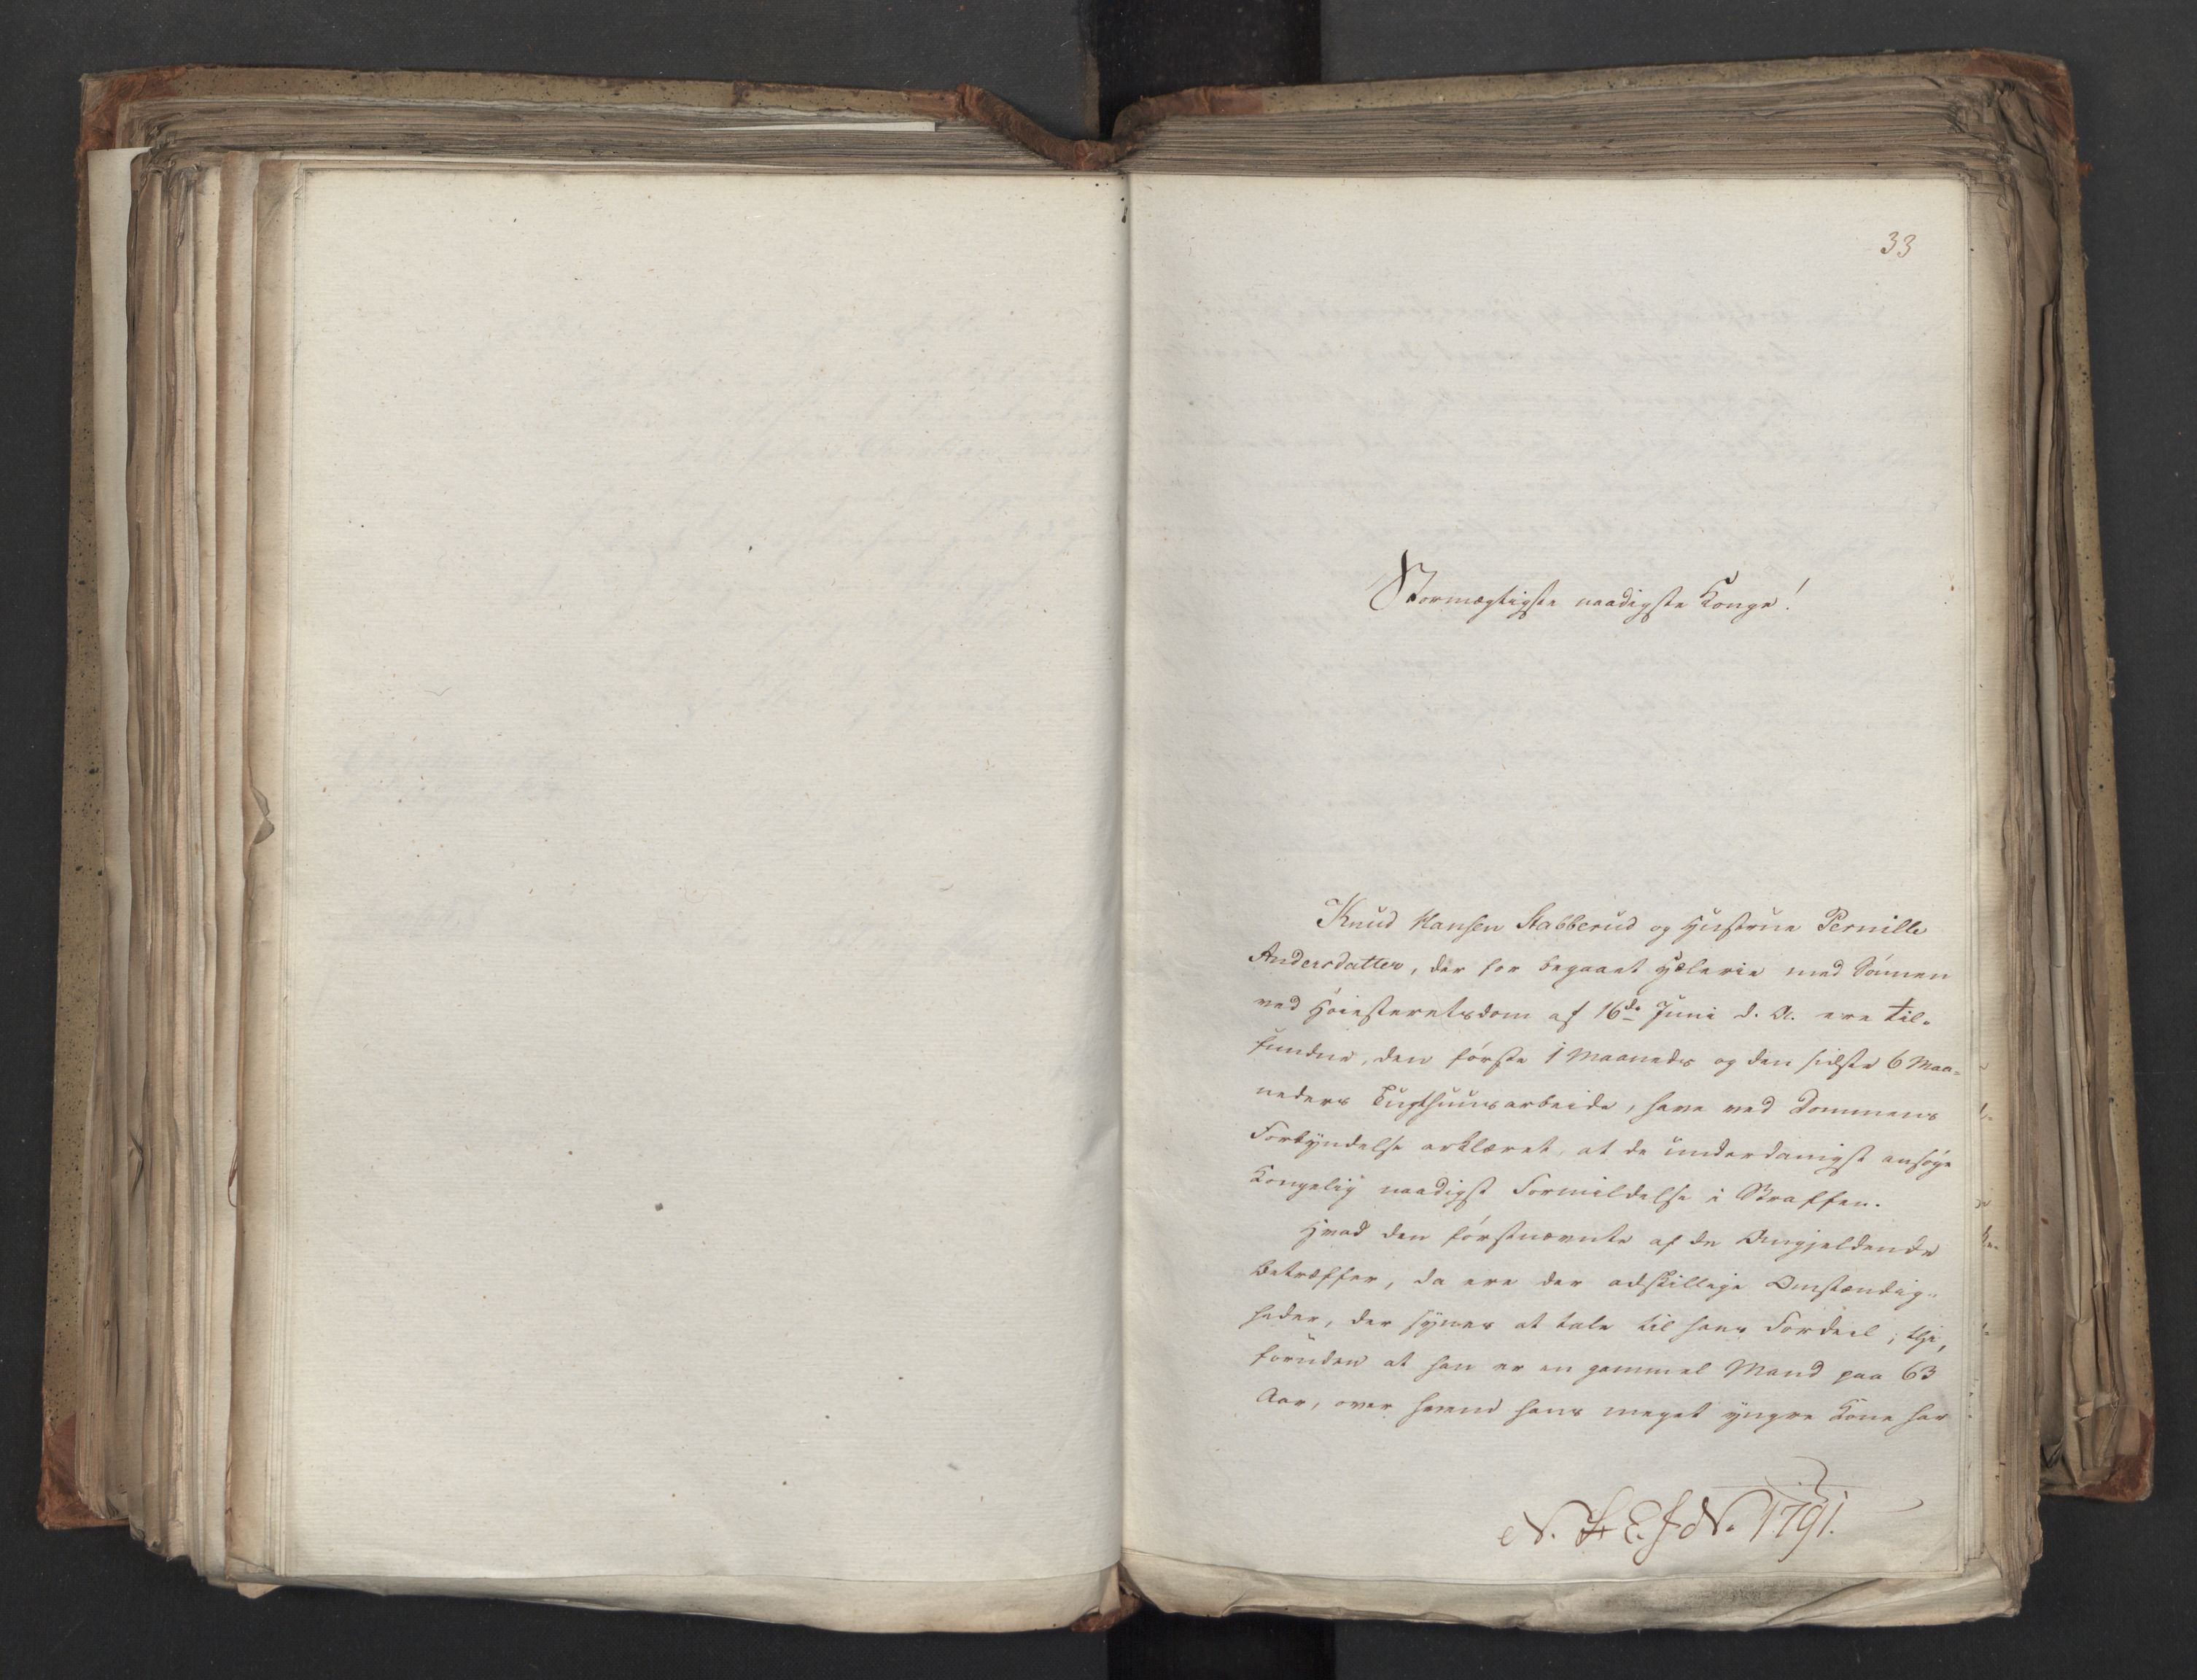 33
Stormægtigste naadigste Konge!
Knud Hansen Stabberud og Hustrue Pernille
Andersdatter, der for begaaet Hælerie med Sønnen
ved Høiesteretsdom af 16de Juni d. A. ere til-
fundne, den første 1 Maaneds og den sidste 6 Maa-
neders Tugthuusarbeide, have ved Dommens
Forkyndelse erklæret, at de underdanigst ansøge
Kongelig naadigst Formildelse i Straffen.
Hvad den førstnævnte af de Angjeldende
betræffer, da ere der adskillige Omstændig-
heder, der synes at tale til hans Fordeel; thi,
foruden at han er en gammel Mand paa 63
Aar, over hvem hans meget yngre Kone har
1791.